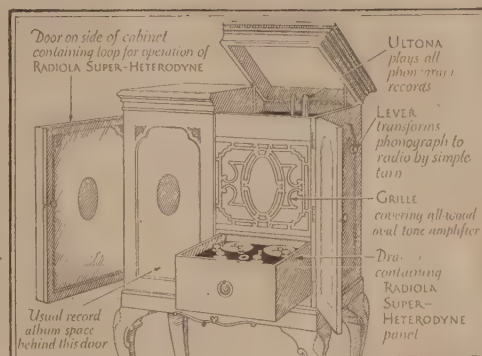 Door on side of cabinet
containing loop for operation of
RADIOLA SUPER-HETERODYNE
ULTONA
plays all
records
LEVER
transforms
phonograph to
radio by simple
turn
GRILLE
covering all-wood
oval tone amplifier
containing
RADIOLA
SUPER-
HETERODYNE
panel
Usual record
album space
behind this door